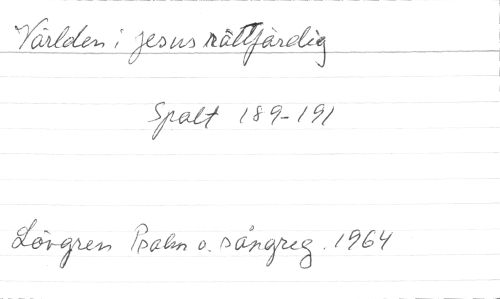 Världen i Jesus rättfärdig
Spalt 189-191
Lövgren Psalm o. sångreg. 1964